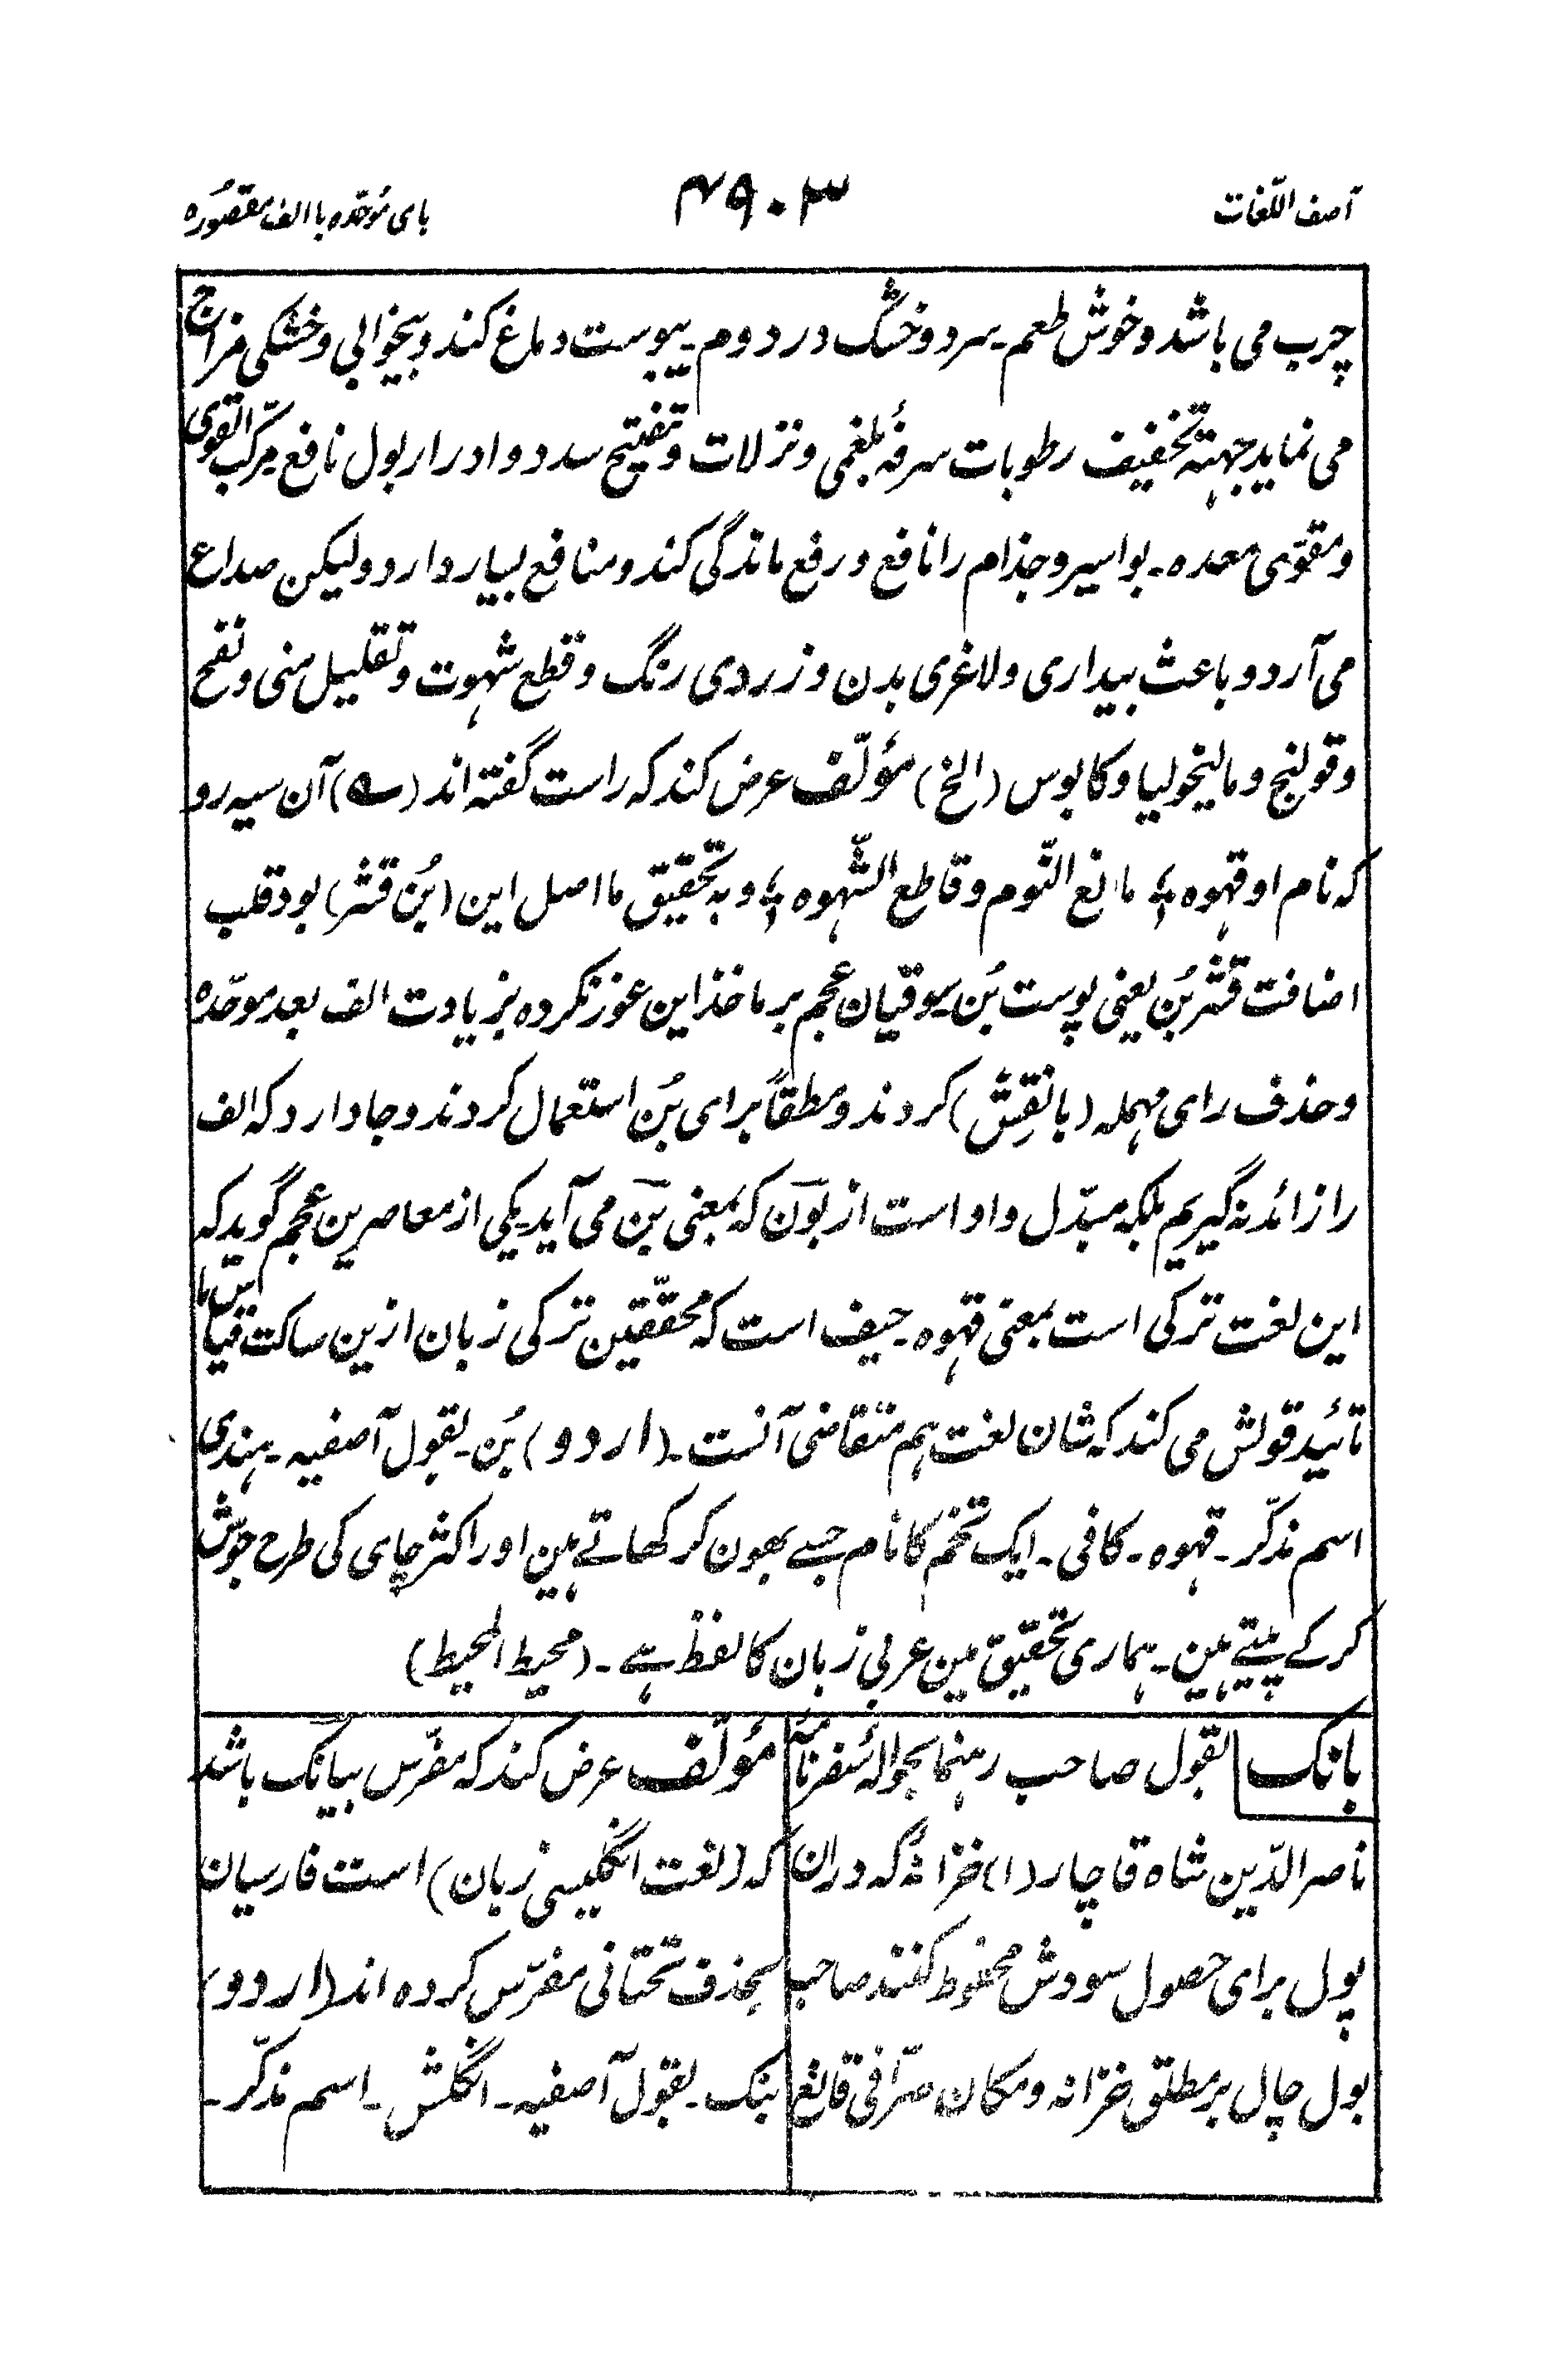 آصف اللّغات
۴۹۰۳
بای موحّده با الف مقصُوره
چرب می باشد و خوش طعم ۔ سرد و خشک در دوم ۔ یبوست دماغ کند و بیخوابی و خشکی مزاج
می نماید جهتہ تخفیف رطوبات سرفۂ بلغمی و نزلات و تفتیح سدد و ادرار بول نافع مرکب القوی
و مقوّی معده ۔ بواسیر و جذام را نافع و رفع ماندگی کند و منافع بسیار دارد و لیکن صداع
می آرد و باعث بیداری و لاغری بدن و زردی رنگ و قطع شهوت و تقلیل منی و نفخ
و قولنج و مالیخولیا و کابوس (الخ) مؤلّف عرض کند که راست گفته اند (ے) آن سیه رو
که نام او قهوه ؛ مانع النّوم و قاطع الشّهوه ؛ و به تحقیق ما اصل این (بُن قشر) بود قلب
اضافت قشر بُن یعنی پوست بُن ۔ سوقیان عجم بر ماخذ این غور نکرده بزیادت الف بعد موحّده
و حذف رای مهمله (بانقِش) کردند و مطلقاً برای بُن استعمال کردند و جا دارد که الف
را زائد نه گیریم بلکه مبدّل واو است از بون که بمعنی بن می آید ۔ یکی از معاصرین عجم گوید که
این لغت ترکی است بمعنی قهوه ۔ حیف است که محقّقین ترکی زبان ازین ساکت قیاس ما
تائید قولش می کند که شان لغت هم متقاضی آنست ۔ (اردو) بُن ۔ بقول آصفیه ۔ ہندی
اسم مذکّر ۔ قہوہ ۔ کافی ۔ ایک تخم کا نام جسے بھون کر کھاتے ہین اور اکثر چای کی طرح جوش
کر کے پیتے ہین ۔ ہماری تحقیق مین عربی زبان کا لفظ ہے ۔ (محیط المحیط)
بانک بقول صاحب رہنما بحوالۂ سفرنامۂ
ناصر الدّین شاه قاچار (۱) خزانۂ که در ان
پول برای حصول سودش محفوظ کنند صاحب
بول چال بر مطلق خزانه و مکان صرّافی قانع
مؤلّف عرض کند که مفرّس بیانک باشد
که (لغت انگلیسی زبان) است فارسیان
بحذف تحتانی مفرّس کرده اند (اردو)
بنک ۔ بقول آصفیه ۔ انگلش ۔ اسم مذکّر ۔